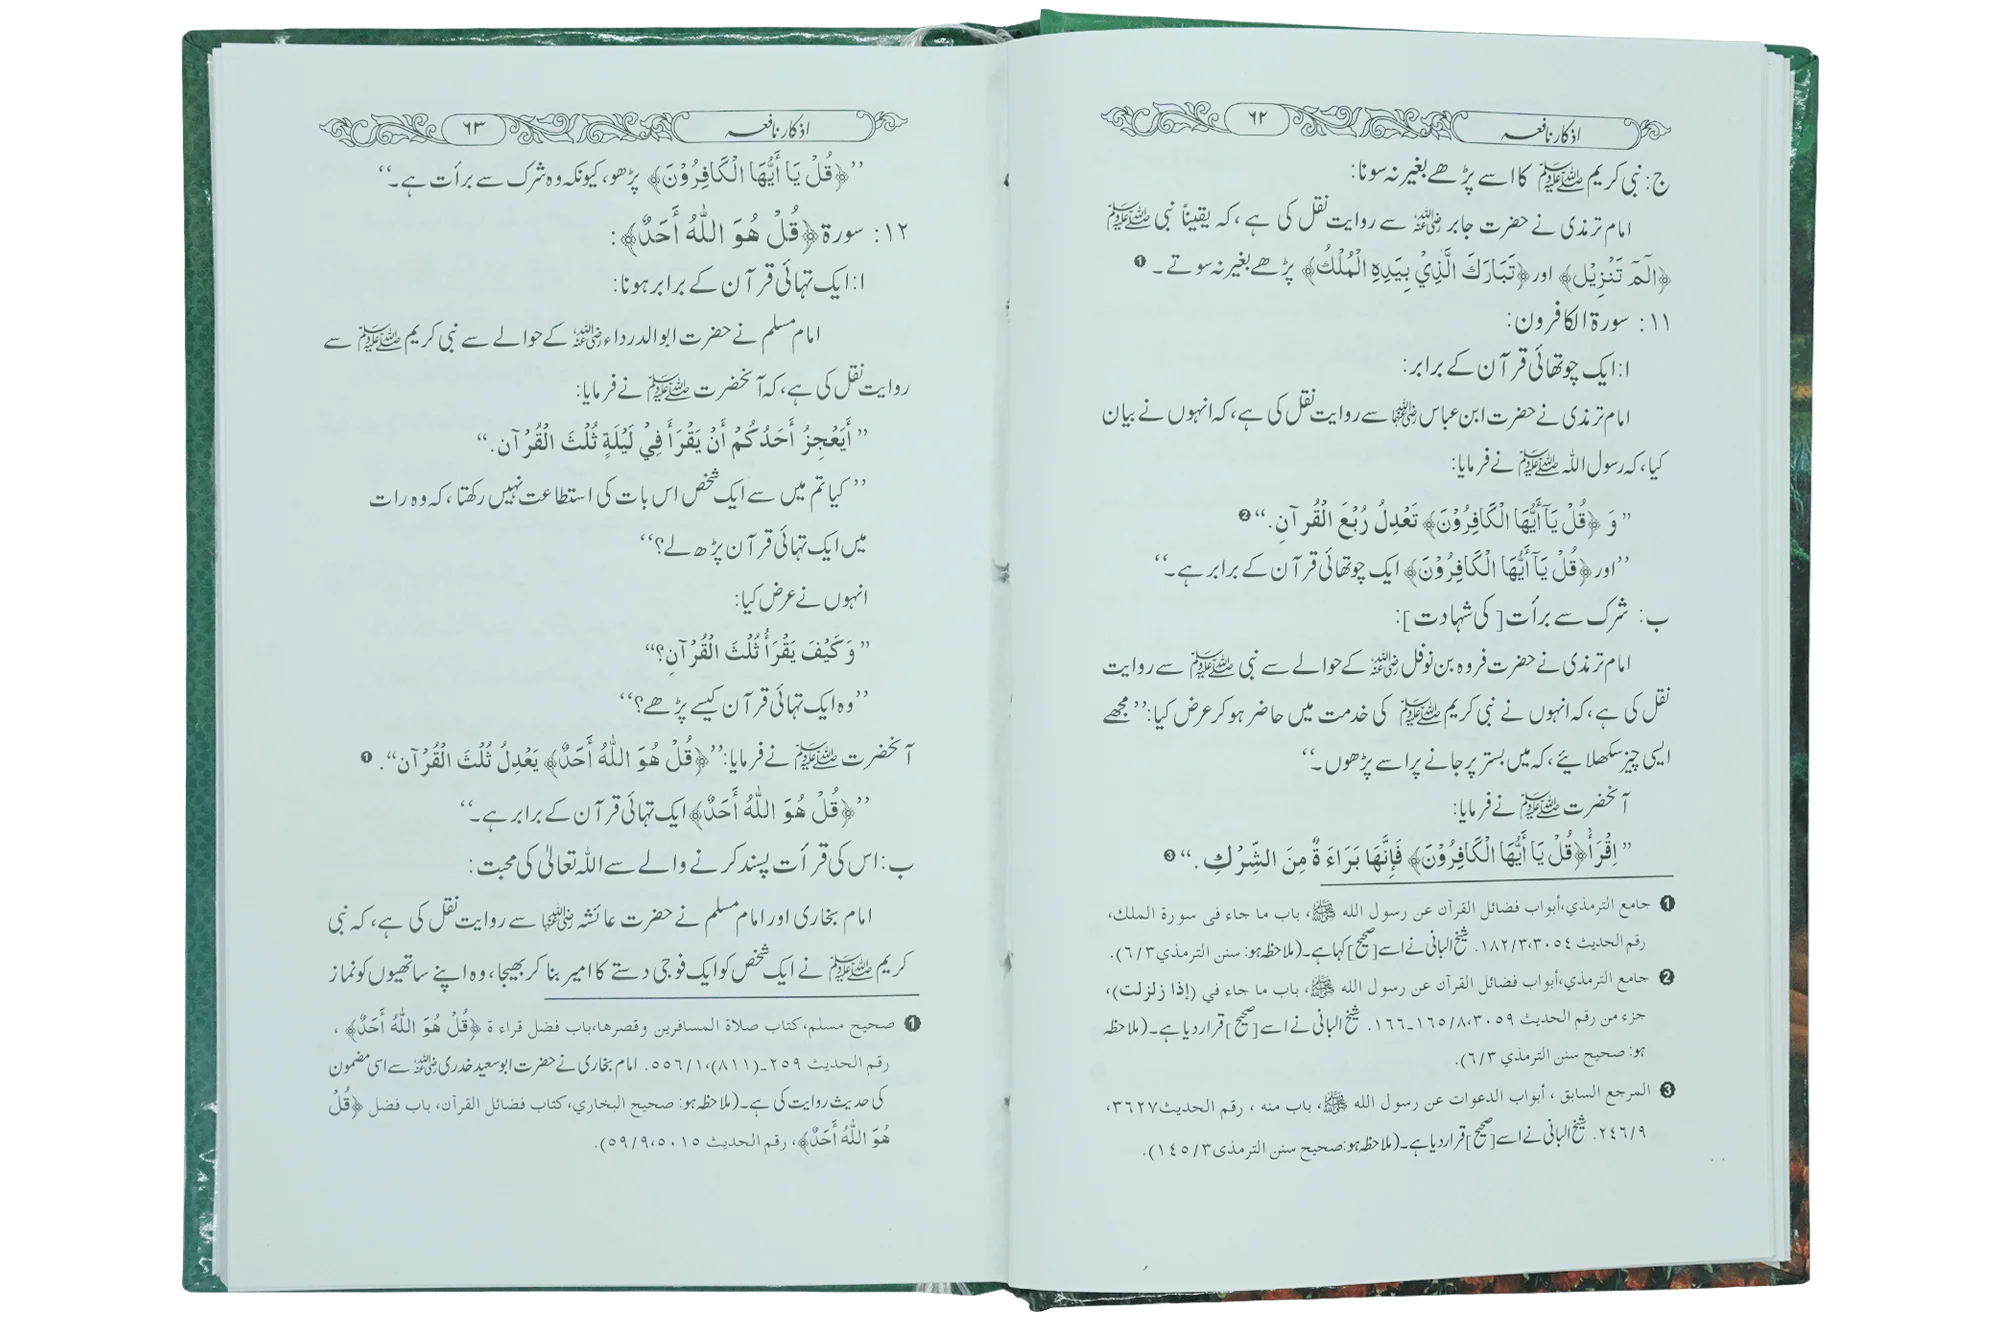 اذکار نافعہ ۶۲
ج: نبی کریم ﷺ کا اسے پڑھے بغیر نہ سونا:
امام ترمذی نے حضرت جابر رضی اللہ عنہ سے روایت نقل کی ہے، کہ یقیناً نبی ﷺ
﴿الٓمٓ تَنْزِیْل﴾ اور ﴿تَبَارَكَ الَّذِيْ بِيَدِهِ الْمُلْكُ﴾ پڑھے بغیر نہ سوتے۔ ❶
۱۱: سورۃ الکافرون:
ا: ایک چوتھائی قرآن کے برابر:
امام ترمذی نے حضرت ابن عباس رضی اللہ عنہما سے روایت نقل کی ہے، کہ انہوں نے بیان
کیا، کہ رسول اللہ ﷺ نے فرمایا:
”وَ ﴿قُلْ يَآ أَيُّهَا الْكَافِرُوْنَ﴾ تَعْدِلُ رُبْعَ الْقُرآنِ.“ ❷
”اور ﴿قُلْ يَآ أَيُّهَا الْكَافِرُوْنَ﴾ ایک چوتھائی قرآن کے برابر ہے۔“
ب: شرک سے برأت [کی شہادت]:
امام ترمذی نے حضرت فروہ بن نوفل رضی اللہ عنہ کے حوالے سے نبی ﷺ سے روایت
نقل کی ہے، کہ انہوں نے نبی کریم ﷺ کی خدمت میں حاضر ہو کر عرض کیا: ”مجھے
ایسی چیز سکھلائیے، کہ میں بستر پر جانے پر اسے پڑھوں۔“
آنحضرت ﷺ نے فرمایا:
”اِقْرَأْ ﴿قُلْ يَا أَيُّهَا الْكَافِرُوْنَ﴾ فَإِنَّهَا بَرَاءَ ةٌ مِنَ الشِّرْكِ.“ ❸
❶ جامع الترمذي، أبواب فضائل القرآن عن رسول الله ﷺ، باب ما جاء فی سورة الملك،
رقم الحديث ٣٠٥٤، ١٨٢/٣. شیخ البانی نے اسے [صحیح] کہا ہے۔ (ملاحظہ ہو: سنن الترمذي ٦/٣).
❷ جامع الترمذي، أبواب فضائل القرآن عن رسول الله ﷺ، باب ما جاء في (إذا زلزلت)،
جزء من رقم الحديث ٣٠٥٩، ١٦٥/٨-١٦٦. شیخ البانی نے اسے [صحیح] قرار دیا ہے۔ (ملاحظہ
ہو: صحيح سنن الترمذي ٦/٣).
❸ المرجع السابق، أبواب الدعوات عن رسول الله ﷺ، باب منه، رقم الحديث ٣٦٢٧،
٢٤٦/٩. شیخ البانی نے اسے [صحیح] قرار دیا ہے۔ (ملاحظہ ہو: صحيح سنن الترمذی ١٤٥/٣).
اذکار نافعہ ۶۳
”﴿قُلْ يَا أَيُّهَا الْكَافِرُوْنَ﴾ پڑھو، کیونکہ وہ شرک سے برأت ہے۔“
۱۲: سورۃ ﴿قُلْ هُوَ اللّٰهُ أَحَدٌ﴾:
ا: ایک تہائی قرآن کے برابر ہونا:
امام مسلم نے حضرت ابو الدرداء رضی اللہ عنہ کے حوالے سے نبی کریم ﷺ سے
روایت نقل کی ہے، کہ آنحضرت ﷺ نے فرمایا:
”أَيَعْجِزُ أَحَدُكُمْ أَنْ يَقْرَأَ فِيْ لَيْلَةٍ ثُلُثَ الْقُرْآن.“
”کیا تم میں سے ایک شخص اس بات کی استطاعت نہیں رکھتا، کہ وہ رات
میں ایک تہائی قرآن پڑھ لے؟“
انہوں نے عرض کیا:
”وَكَيْفَ يَقْرَأُ ثُلُثَ الْقُرْآنِ؟“
”وہ ایک تہائی قرآن کیسے پڑھے؟“
آنحضرت ﷺ نے فرمایا: ”﴿قُلْ هُوَ اللّٰهُ أَحَدٌ﴾ يَعْدِلُ ثُلُثَ الْقُرْآن“. ❶
”﴿قُلْ هُوَ اللّٰهُ أَحَدٌ﴾ ایک تہائی قرآن کے برابر ہے۔“
ب: اس کی قرأت پسند کرنے والے سے اللہ تعالیٰ کی محبت:
امام بخاری اور امام مسلم نے حضرت عائشہ رضی اللہ عنہا سے روایت نقل کی ہے، کہ نبی
کریم ﷺ نے ایک شخص کو ایک فوجی دستے کا امیر بنا کر بھیجا، وہ اپنے ساتھیوں کو نماز
❶ صحیح مسلم، کتاب صلاة المسافرين وقصرها، باب فضل قراء ة ﴿قُلْ هُوَ اللّٰهُ أَحَدٌ﴾،
رقم الحديث ٢٥٩-(٨١١)، ٥٥٦/١. امام بخاری نے حضرت ابوسعید خدری رضی اللہ عنہ سے اسی مضمون
کی حدیث روایت کی ہے۔ (ملاحظہ ہو: صحيح البخاري، كتاب فضائل القرآن، باب فضل ﴿قُلْ
هُوَ اللّٰهُ أَحَدٌ﴾، رقم الحديث ٥٠١٥، ٥٩/٩).